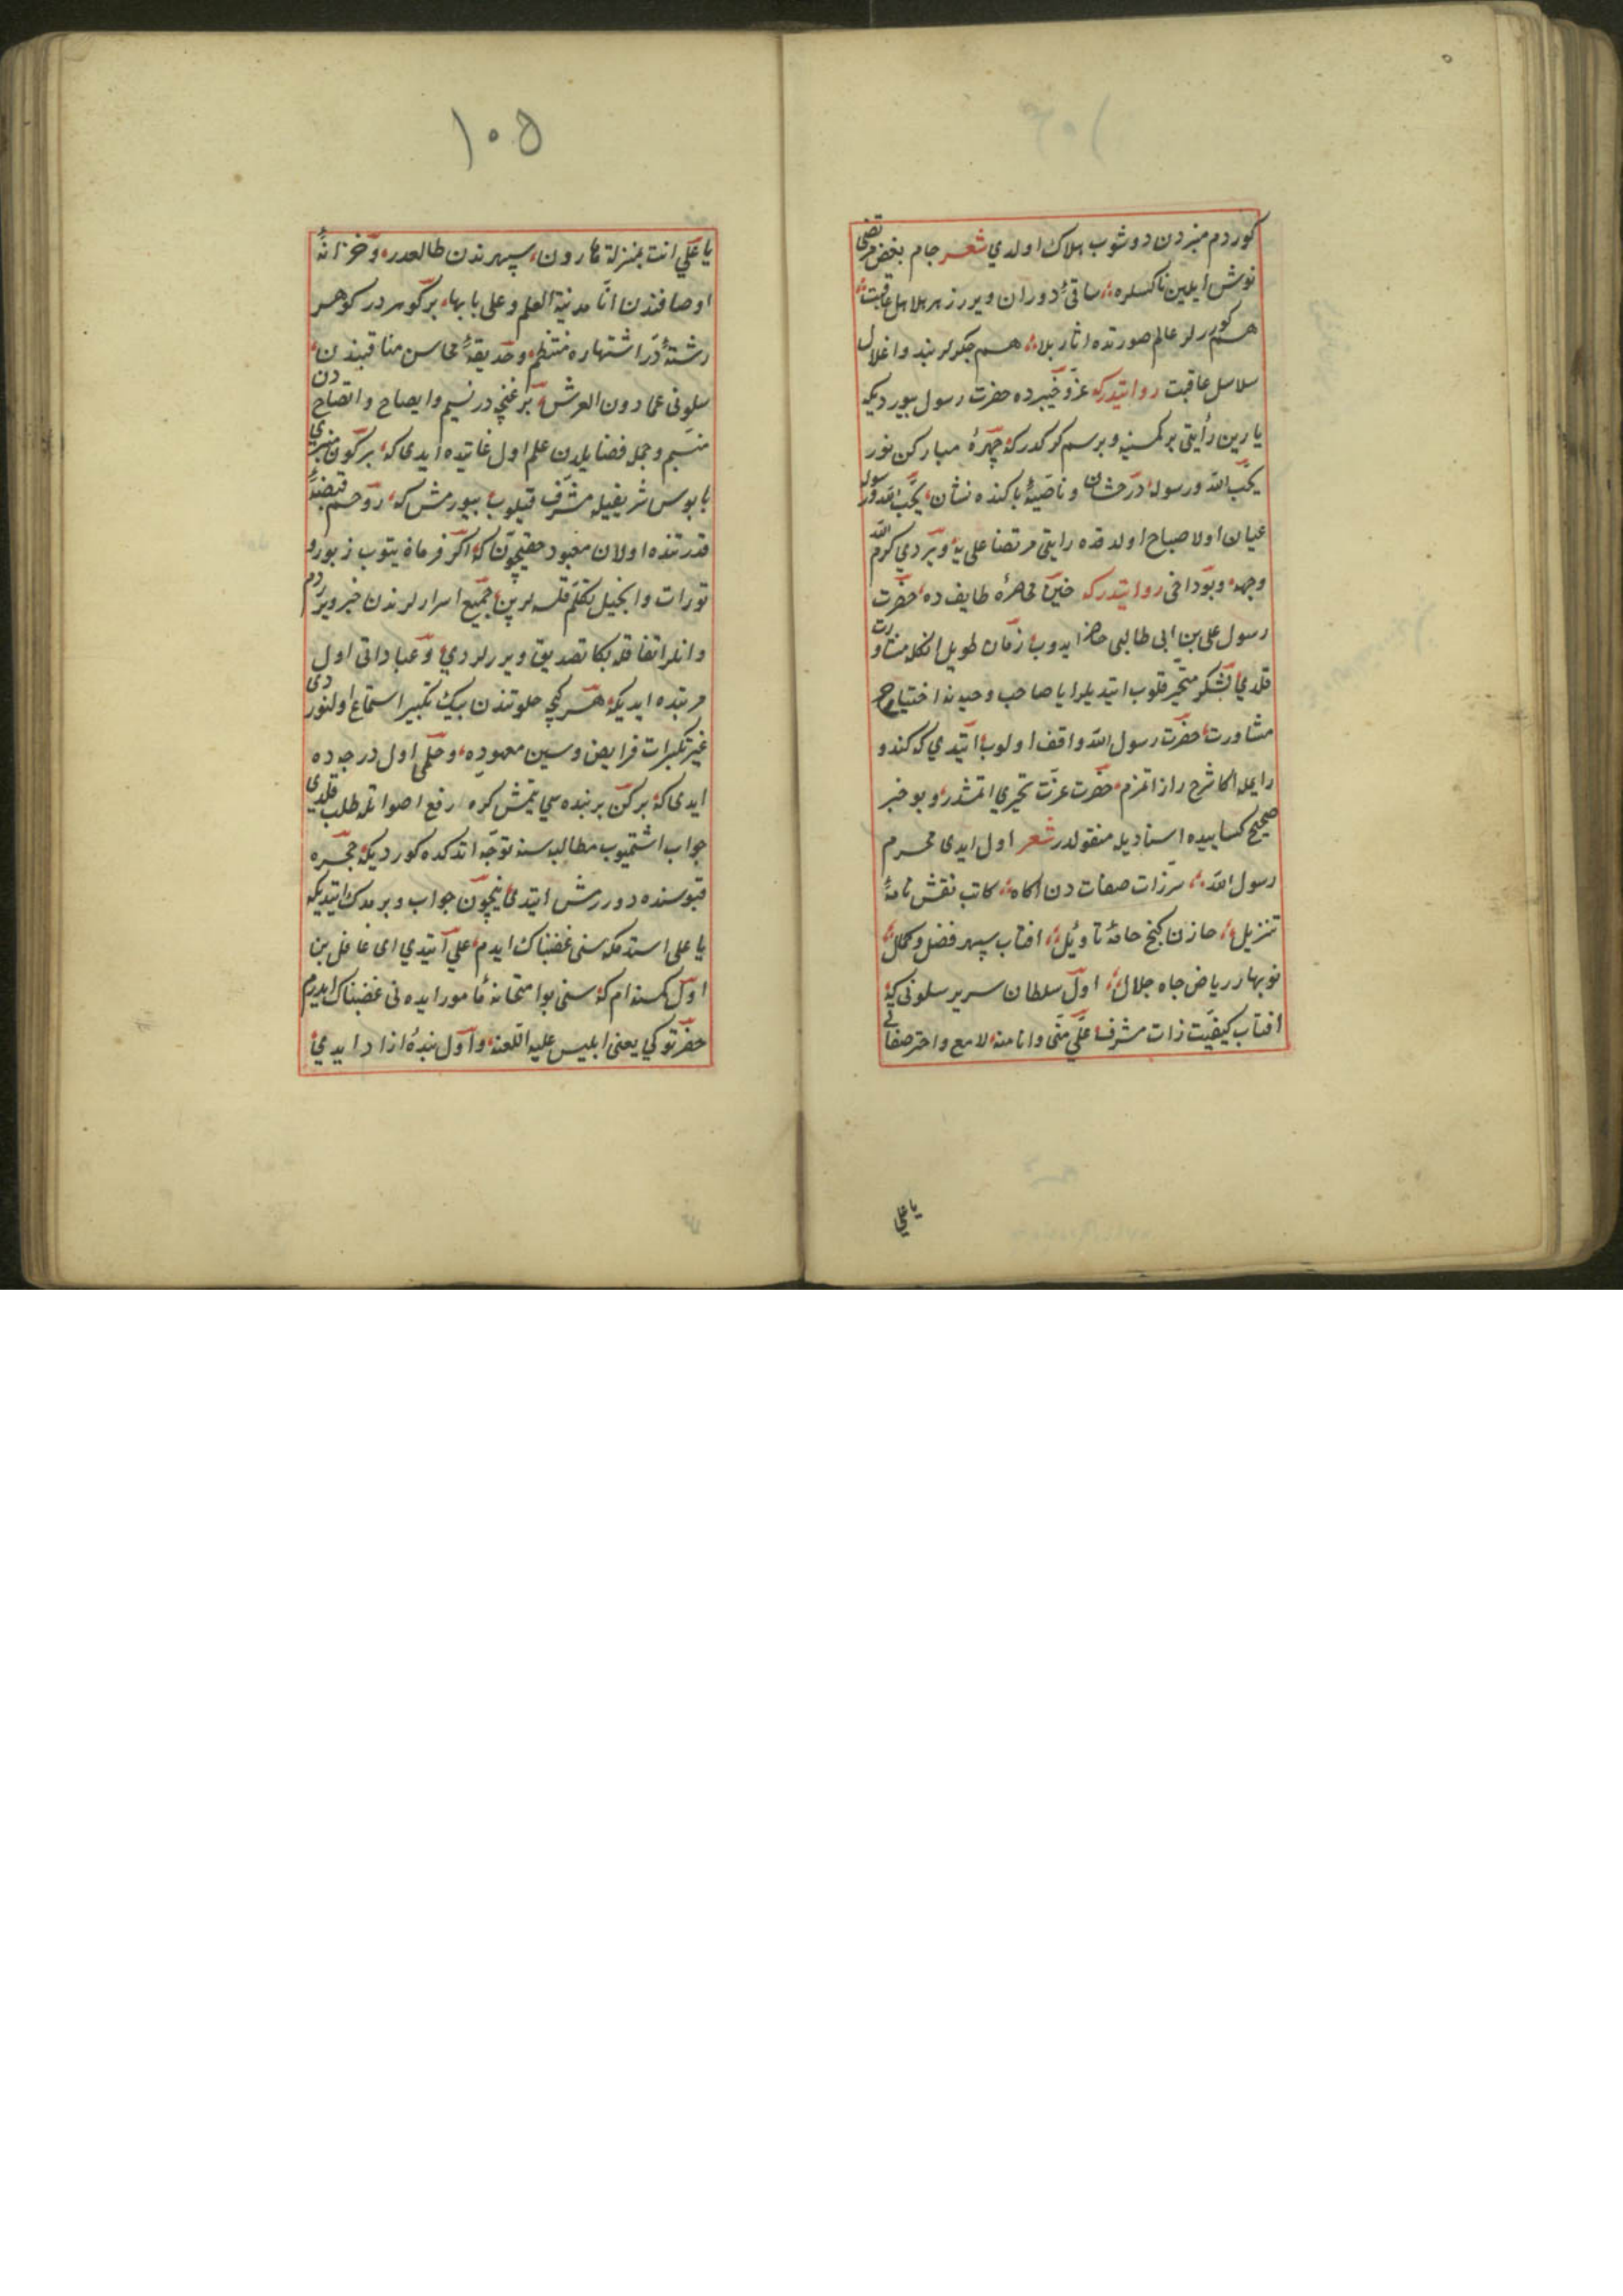 كوردم منبردن دوشوب هلاك اولدي شعر جام بغض مرتضى
نوش ايلين ناكسلره ساقئ دوران ويرر زهر هلاهل عاقبت
هم كوررلر عالم صورتده اثار بلا هم چكرلر بند و اغلال
سلاسل عاقبت روايتدركه غزو خيبرده حضرت رسول بيورديكه
يارين رأيتى بر كمسنيه ويرسم كركدركه چهرۀ مباركن نور
يحب الله ورسوله درخشان و ناصيۀ پاكنده نشان يحب الله ورسوله
عيان اولا صباح اولدقده رايتى مرتضا على يه ويردي كرم الله
وجهه وبو داخى روايتدركه حين محاصرۀ طايف ده حضرت
رسول على بن ابى طالبى حاضر ايدوب زمان طويل انكله مشاورت
قلدي لشكر متحير قلوب ايتديلر ايا صاحب وحيه نه احتياج
مشاورت حضرت رسول الله واقف اولوب ايتدي كه كندو
رايمله اكا شرح راز اتمزم حضرت عزت تحيري اتمشدر وبو خبر
صحيح كسابيده اسناديله منقولدر شعر اول ايدى محرم
رسول الله سرّ ذات صفات دن اكاه كاتب نقش نامۀ
تنزيل خازن كنج خامۀ تاويل افتاب سپهر فضل وكمال
نوبهار رياض جاه جلال اول سلطان سرير سلونى كه
افتاب كيفيت ذات مشرفى علي منّى وانا منه لامع واختر صفاتى
يا على
١٠٥
يا علي انت بمنزلة هارون سپهرندن طالعدر وخزانۀ
اوصافندن انا مدينة العلم وعلى بابها بر كوهردر كوهر
رشتۀ در اشتهاره منتظم وحديقۀ محاسن مناقبندن
سلونى عما دون العرش بر غنچه در نسيم وايصاح واتضاح دن
متبسم وجمل فضايلدن علم اول غايتده ايدى كه بر كون منبرى
پابوس شريفيله مشرف قيلوب بيورمش كه روحم قبضۀ
قدرتنده اولان معبود حقيچون كه اكر فرمان يتوب زبور و
تورات وانجيل تكلم قلسه لر بن جميع اسرارلرندن خبر ويردم
وانلر اتفاقله بكا تصديق ويررلردي وعباداتى اول
مرتبده ايديكه هر كيچه خلوتندن بيك تكبير استماع اولنوردى
غير تكبيرات فرايض وسنن معهوده وحلمى اول درجه ده
ايدى كه بر كون بر بنده سي يتمش كره رفع اصواتله طلب قلدي
جواب اشتميوب مطالبه سنه توجه اتدكده كورديكه حجره
قپوسنده دوررمش ايتدى نيچون جواب ويرمدك ايتديكه
يا على استدمكه سنى غضبناك ايدم علي ايتدي اى غافل بن
اول كمسنه ام كه سنى بو امتحانه مامور ايده نى غضبناك ايدرم
حضرتوكي يعنى ابليس عليه اللعنه واول بندۀ ازاد ايدي